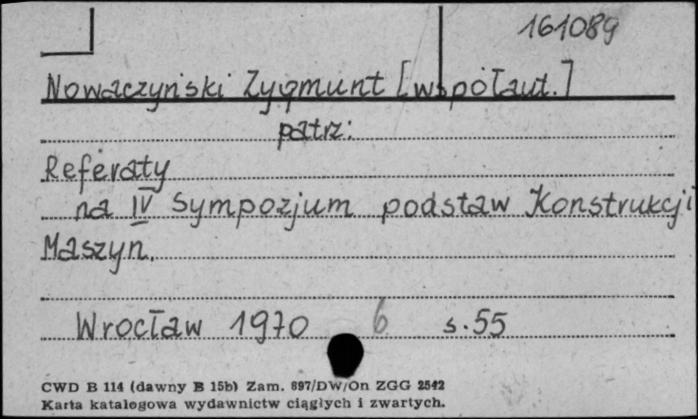 161089
Nowaczyński Zygmunt [współaut.]
patrz:
Referaty
na IV Sympozjum podstaw Konstrukcji
Maszyn.
Wrocław 1970 6 s.55
CWD B 114 (dawny B 15b) Zam. 697/DW/On ZGG 2542
Karta katalogowa wydawnictw ciągłych i zwartych.